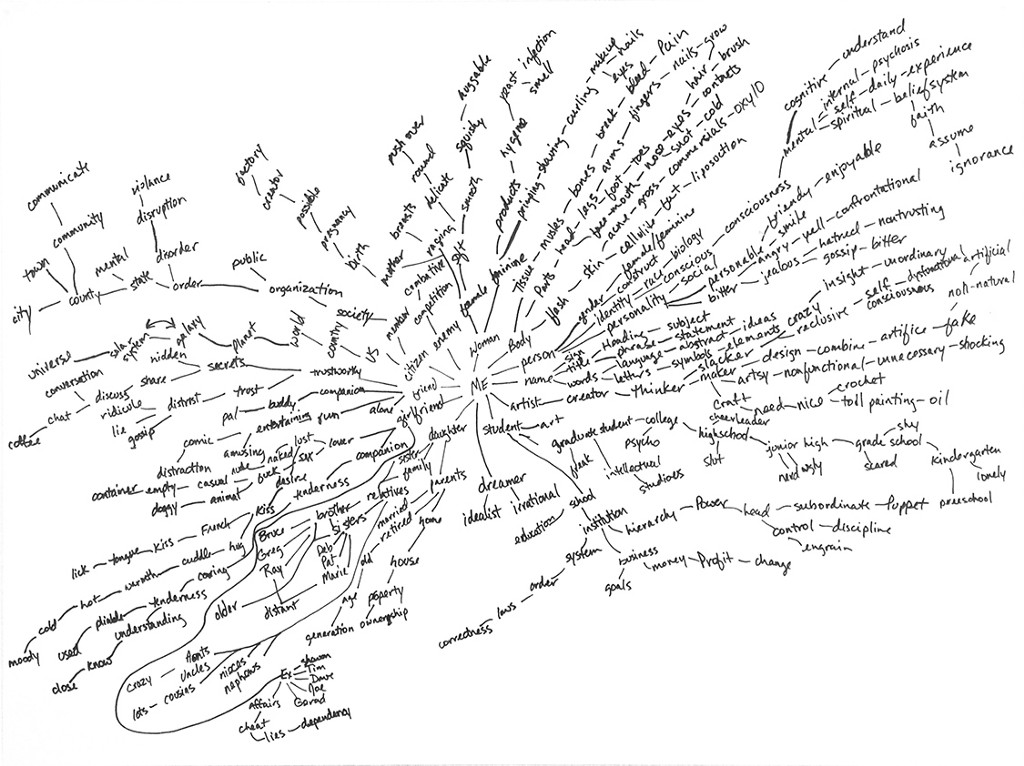 ME
woman
female
feminine
soft
smooth
squishy
huggable
mother
raging
delicate
round
push over
breasts
birth
pregnancy
possible
creator
factory
products
hygene
yeast infection
smell
priping - shaving - curling - makeup
nails
Body
Tissue - muscles - bones - break - bleed - Pain
Parts - head - legs - arms - fingers - nails - grow
foot - toes
hair - brush
face - mouth - nose - eyes - contacts
snot - cold
flesh - skin - acne - gross - commercials - oxy10
cellulite - fat - liposuction
person
gender
female/feminine
construct - biology
identity - ra/conscious
personality - social
consciousness
mental
cognitive - understand
internal - psychosis
self - daily - experience
spiritual - belief system
faith
assume
ignorance
personable - friendly - enjoyable
smile
angry - yell - confrontational
bitter - jealous - hatred - nontrusting
gossip - bitter
name
sign
title - Heading - subject
words - phrase - statement
language - abstract - ideas
letters - symbols - elements
artist - creator - Thinker - slacker - crazy - insight - unordinary
reclusive - self - dysfunctional - artificial
consciousness
non-natural
maker - artsy - design - combine - artific - fake
nonfunctional - unnecessary - shocking
craft - need - nice - toll painting - oil
crochet
student - art
graduate student - college - highschool - junior high - grade school - kindergarten
cheerleader
slut
nerd
ugly
shy
scared
lonely
preschool
geek
psycho
intellectual
studious
school
education
institution
hierarchy - Power - head - subordinate - Puppet
control - discipline
engrain
business - money - Profit - change
goals
system
order
laws
correctness
dreamer
idealist
irrational
daughter
parents
married
retired
home
house
property
ownership
old
age
generation
family
sister
relatives
brother
sisters
Bruce
Greg
Ray
Deb
Pat
Marie
older
distant
Aunts
Uncles
cousins
nieces
nephews
crazy
lots
girlfriend
companion
lover
lust
sex
naked
nude
fuck
casual
empty
container
desire
animal
doggy
tenderness
Kiss
French
Kiss
tongue
lick
hug
cuddle
warmth
hot
cold
moody
caring
tenderness
pliable
used
understanding
know
close
Ex
shawn
Tim
Dave
Joe
Gerad
Affairs
cheat
lies - dependency
friend
alone
fun
entertaining
comic
amusing
distraction
companion
buddy
pal
trustworthy
trust
distrist
ridicule
lie
gossip
secrets
hidden
share
discuss
conversation
chat
coffee
citizen
us
country
world
planet
galaxy
solar system
universe
member
society
organization
public
order
disorder
disruption
violance
state
mental
county
community
communicate
town
city
enemy
competition
combative